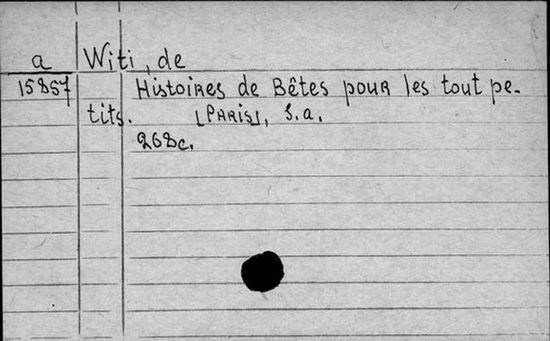 a Witi, de
15857 Histoires de Bêtes pour les tout pe-
tits. [Paris], S.a.
268c.